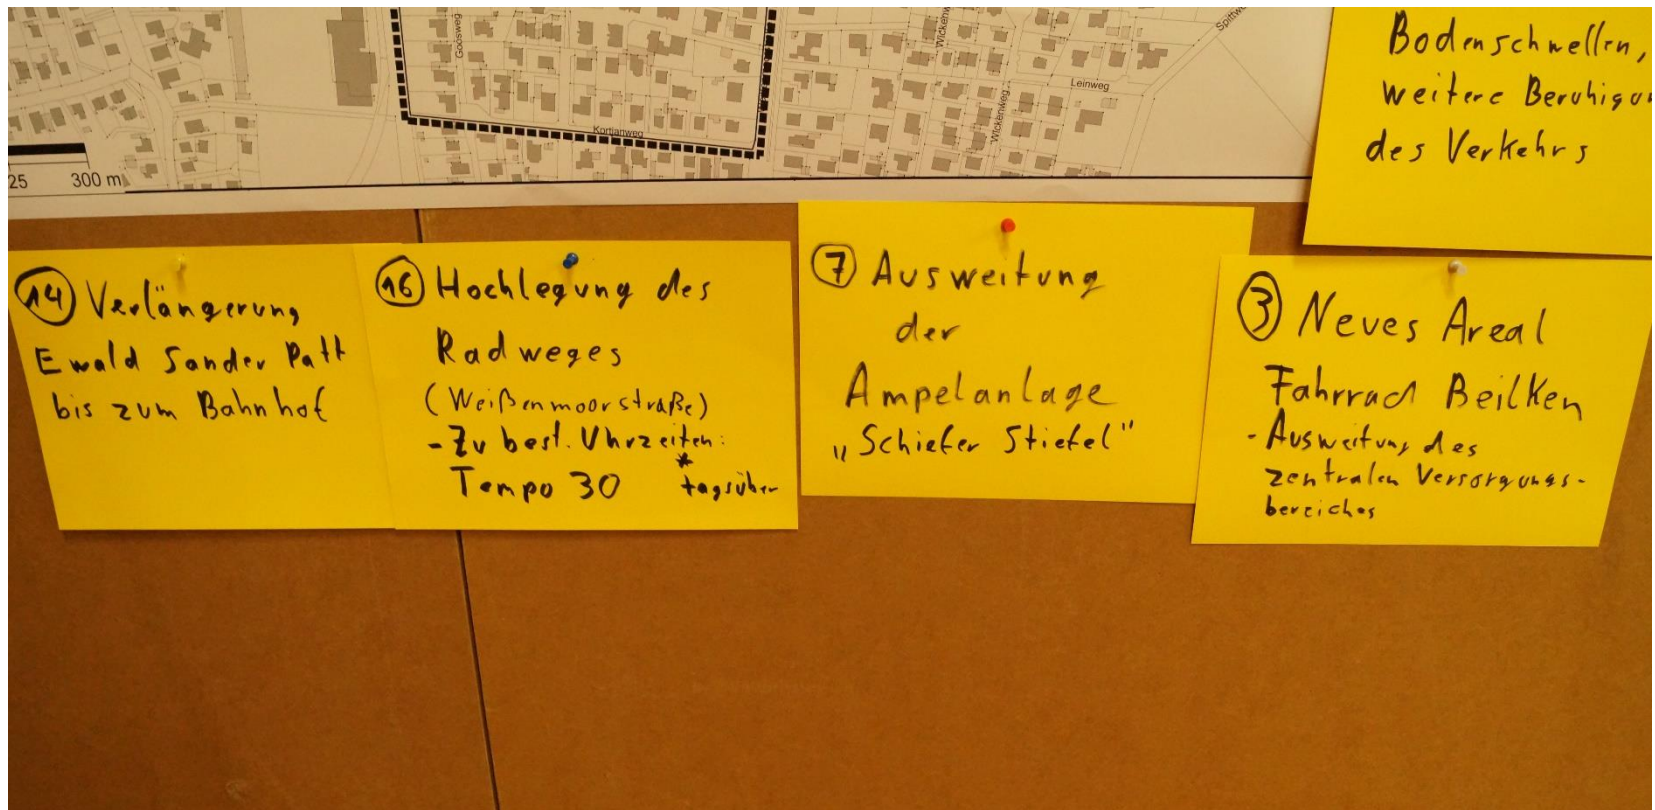 Goosweg
Wickenw
Spittwe
Leinweg
Wickenweg
Kortjanweg
25 300 m
Bodenschwellen,
weitere Beruhigun
des Verkehrs
14 Verlängerung
Ewald Sander Patt
bis zum Bahnhof
16 Hochlegung des
Radweges
(Weißenmoorstraße)
- Zu best. Uhrzeiten:
Tempo 30 * tagsüber
7 Ausweitung
der
Ampelanlage
„Schiefer Stiefel"
3 Neues Areal
Fahrrad Beilken
- Ausweitung des
zentralen Versorgungs-
bereiches